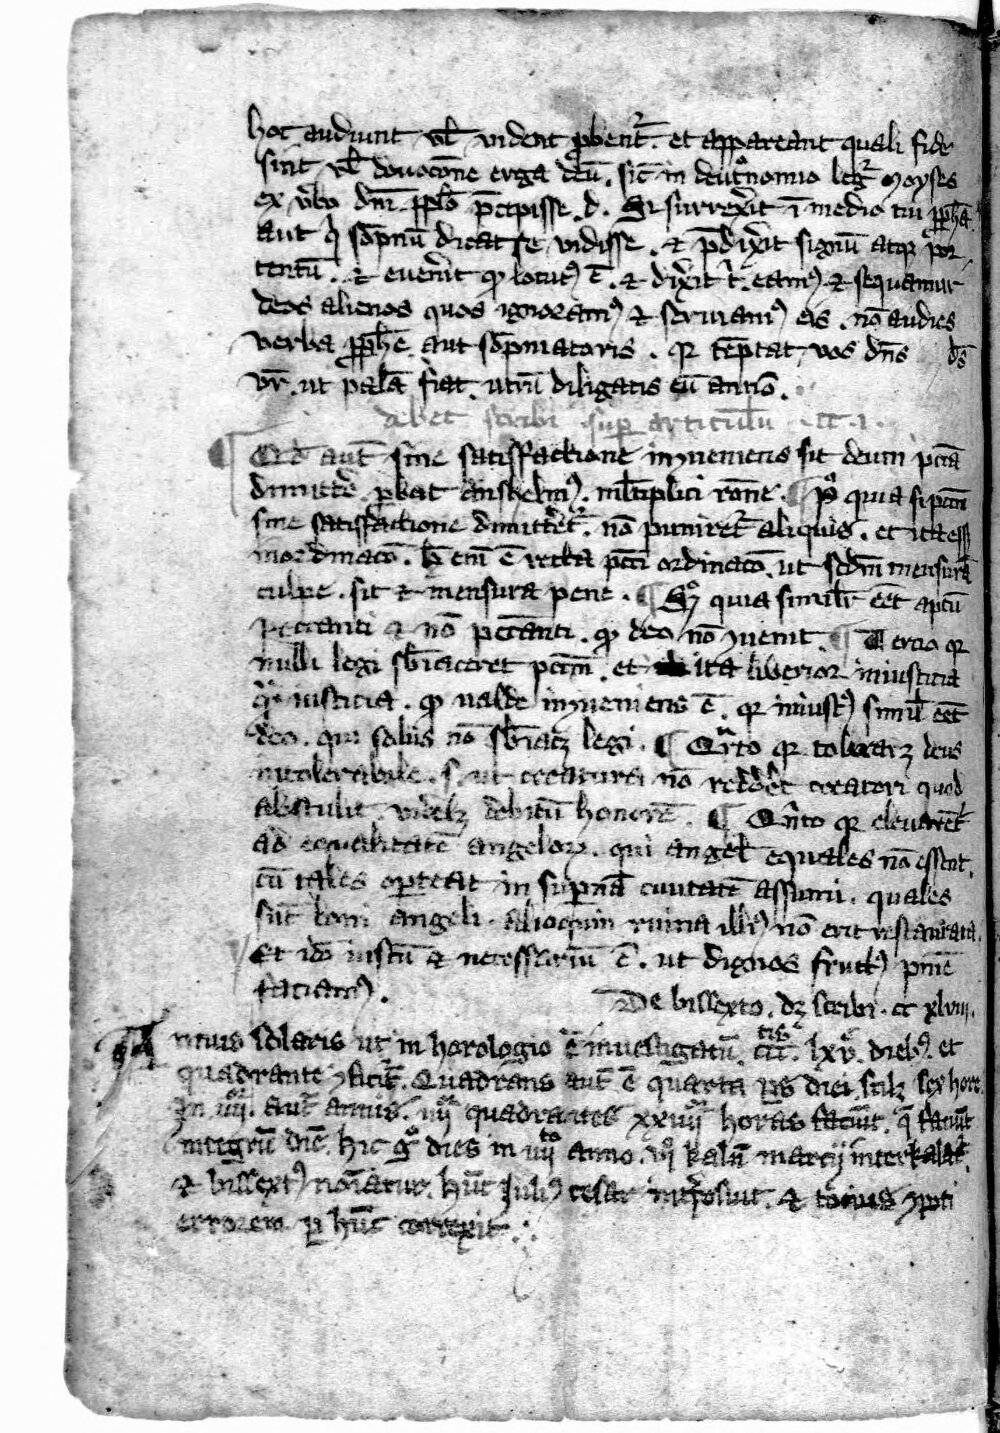 hoc audiunt ul̄ vident ꝓbent᷑. et appareant quali fide
sint ul̄ deuocōne erga deū. sic̄ in deut᷑onomio leg᷑ moyses
ex v̓bo dn̄i ppl̄o p̄cepisse. d. Si surrex̓it ī medio tui ꝓph̄a
aut q̓ sōpniū dicat se vidisse. et p̄dix̓it signū atqꝫ por
tentū. et euen̓it qd̓ locutꝰ ē. et dix̓it t᷑. eamꝰ et sequamur
deos alienos quos ignoramꝰ et seruiamꝰ eis. nō audies
verba ꝓph̄e aut sōpniatoris. qꝛ tēptat vos dn̄s ds̄
vr̄. ut palā fiat utrū diligatis eū an nō.
debet scribi sup articulū . cc . i .
¶ Qd̓ aut̄ sine satisfactione inꝯueniens sit deum pctā
dimitt̓e ꝓbat anshelmꝰ. ml̄tiplici rōne. ¶ pº quia si pctm̄
sine satisfactione dimitt̓et᷑. nō puniret᷑ aliquis. et ita ess̄
inordinatō. h̄ em̄ ē recta pcti ordinatō. ut scdm̄ mensurā
culpe. sit et mensura pene. ¶ Sº quia simil̄r eēt apud
peccanti et nō peccanti. qd̓ deo nō ꝯuenit. ¶ Tercio qꝛ
nulli legi sb̄iaceret pctm̄. et ita liberior iniusticia
q̓ iusticia. qd̓ ualde inꝯueniens ē. qꝛ iniustꝰ simil̄ eēt
deo. qui solus nō sb̄iacꝫ legi. ¶ Qr̄to qꝛ tolerarꝫ deus
intolerabile. s. ut creatura nō redd̓et creatori quod
abstulit. videlꝫ debitū honorē. ¶ Qn̄to qꝛ eleuaret᷑
ad equalitatē angeloꝝ. qui angel̄ equales nō essent.
cū tales oporteat in sup̓nā ciuitatē assumi. quales
sūt boni angeli. alioquin ruina illꝰ nō erit restaurata.
Et idō iustū et necessariū ē. ut dignos fructꝰ pnīe
faciamꝰ.
De bissexto. dꝫ scribi. cc xlviii.
Annus solaris ut in horologio ē inuestigatū. ccc̄tis. lxv. diebꝰ. et
quadrante ꝯficit᷑. Quadrans aut̄ ē quarta ps̄ diei. scilꝫ sex hore.
In iiii. aut̄ annis. iiii quadrantes xxiiii horas faciūt. q̄ faciūt
integrū diē. hic gº dies in iiiito anno. vi kaln̄ marcij interkalat᷑.
et bissextꝰ nōiatur. hūc Juliꝰ cesar int̓posuit. et tocius ꝯpoti
errorem p hūc correxit.